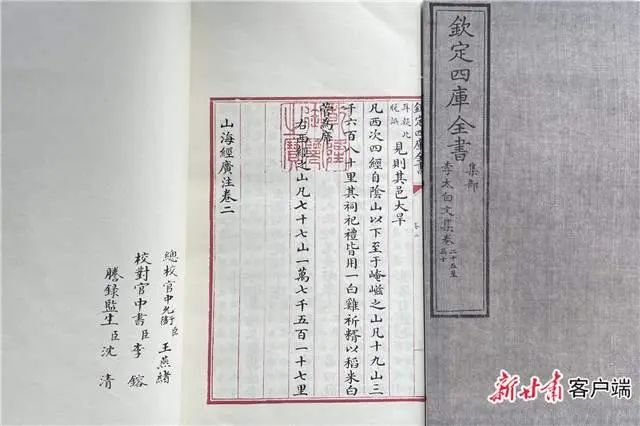 欽定四庫全書
集部
李太白文集卷二十五至三十
欽定四庫全書
見則其邑大旱
凡西次四經自陰山以下至于崦嵫之山凡十九山三
千六百八十里其祠祀禮皆用一白雞祈糈以稻米白
菅為席
右西經之山凡七十七山一萬七千五百一十七里
山海經廣注卷二
總校官中允銜臣王燕緒
校對官中書臣李鎔
謄録監生臣沈清
新甘肃客户端